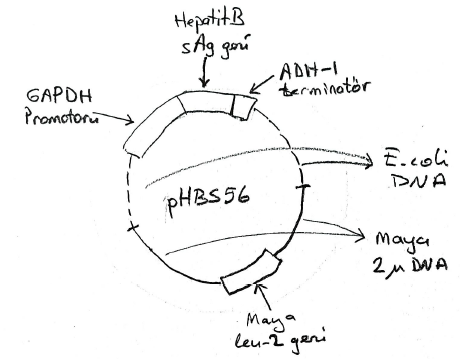 Hepatit B
sAg geni
ADH-1
terminatör
GAPDH
Promotoru
E.coli
DNA
pHBS56
Maya
2μ DNA
Maya
leu-2 geni